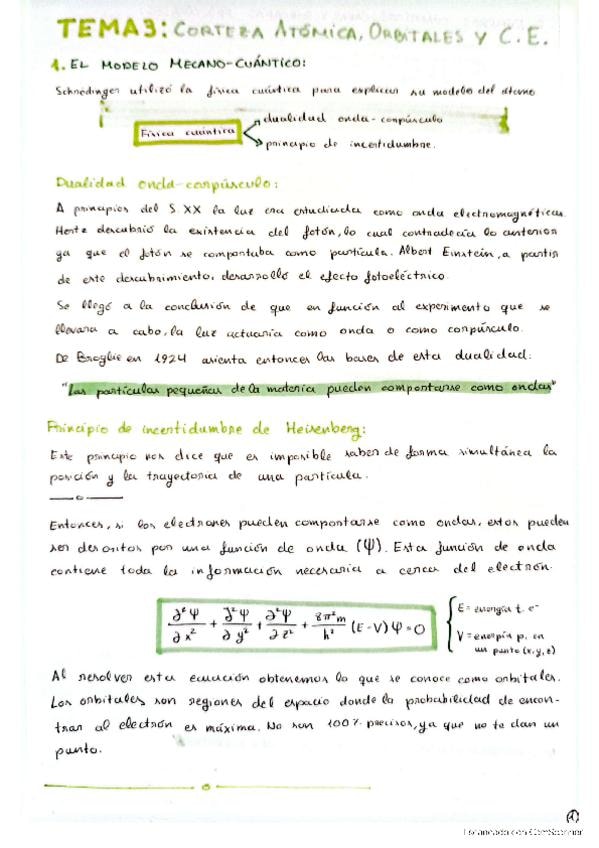 TEMA3: CORTEZA ATÓMICA, ORBITALES Y C.E.
1. EL MODELO MECANO-CUÁNTICO:
Schrodinger utilizó la física cuántica para explicar su modelo del átomo
Física cuántica
dualidad onda-corpúsculo
principio de incertidumbre.
Dualidad onda-corpúsculo:
A principios del S.XX la luz era estudiada como onda electromagnética.
Hertz descubrió la existencia del fotón, lo cual contradecía lo anterior
ya que el fotón se comportaba como partícula. Albert Einstein, a partir
de este descubrimiento, desarrolló el efecto fotoeléctrico.
Se llegó a la conclusión de que en función al experimento que se
llevara a cabo, la luz actuaría como onda o como corpúsculo.
De Broglie en 1924 asienta entonces las bases de esta dualidad:
"Las partículas pequeñas de la materia pueden comportarse como ondas"
Principio de incertidumbre de Heisenberg:
Este principio nos dice que es imposible saber de forma simultánea la
posición y la trayectoria de una partícula.
Entonces, si los electrones pueden comportarse como ondas, estos pueden
ser descritos por una función de onda (Ψ). Esta función de onda
contiene toda la información necesaria a cerca del electrón.
∂²Ψ/∂x² + ∂²Ψ/∂y² + ∂²Ψ/∂z² + 8π²m/h² (E-V) Ψ = 0
E = energía t. e⁻
V = energía p. en
un punto (x,y,z)
Al resolver esta ecuación obtenemos lo que se conoce como orbitales.
Los orbitales son regiones del espacio donde la probabilidad de encon-
trar al electrón es máxima. No son 100% precisos, ya que no te dan un
punto.
1
Escaneado con CamScanner